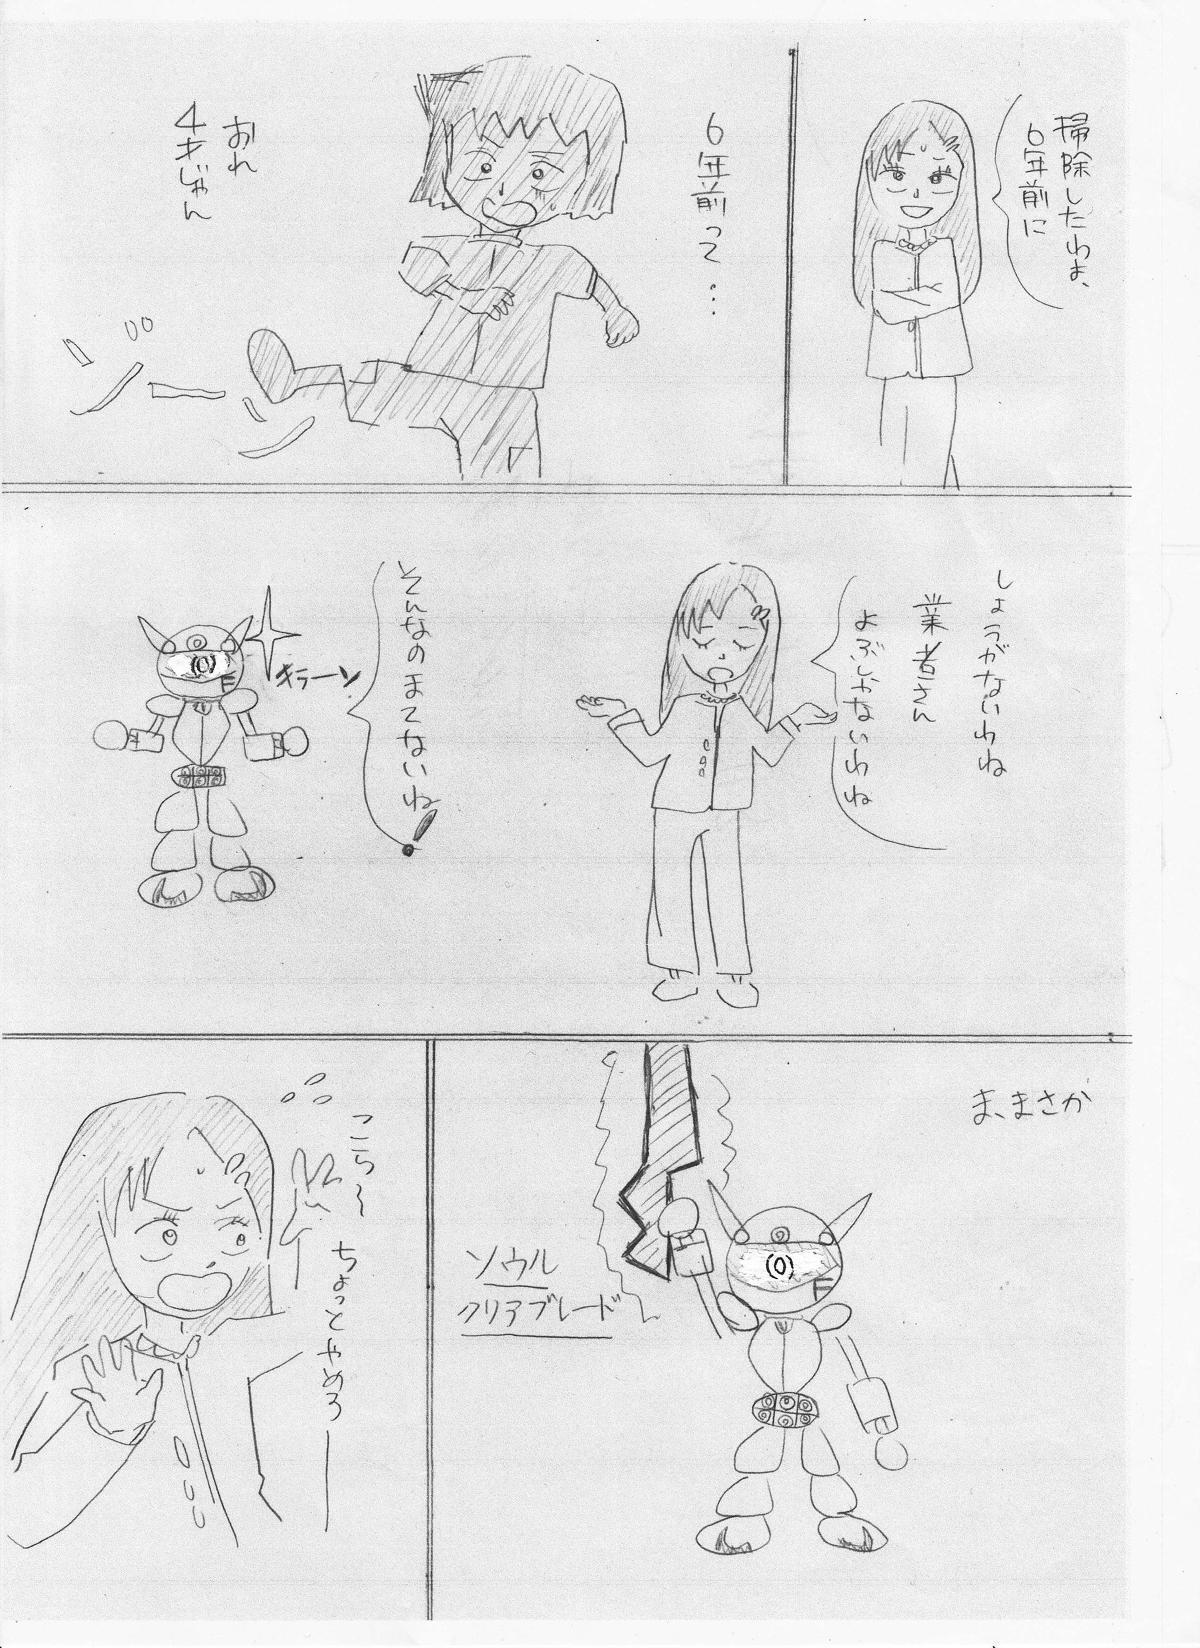 掃除したわよ、
6年前に
6年前って…
おれ
4才じゃん
しょうがないわね
業者さん
よぶしかないわね
そんなのまてないね!
キラーン
F
ま、まさか
F
ソウル
クリアブレード
こら〜
ちょっとやめろー